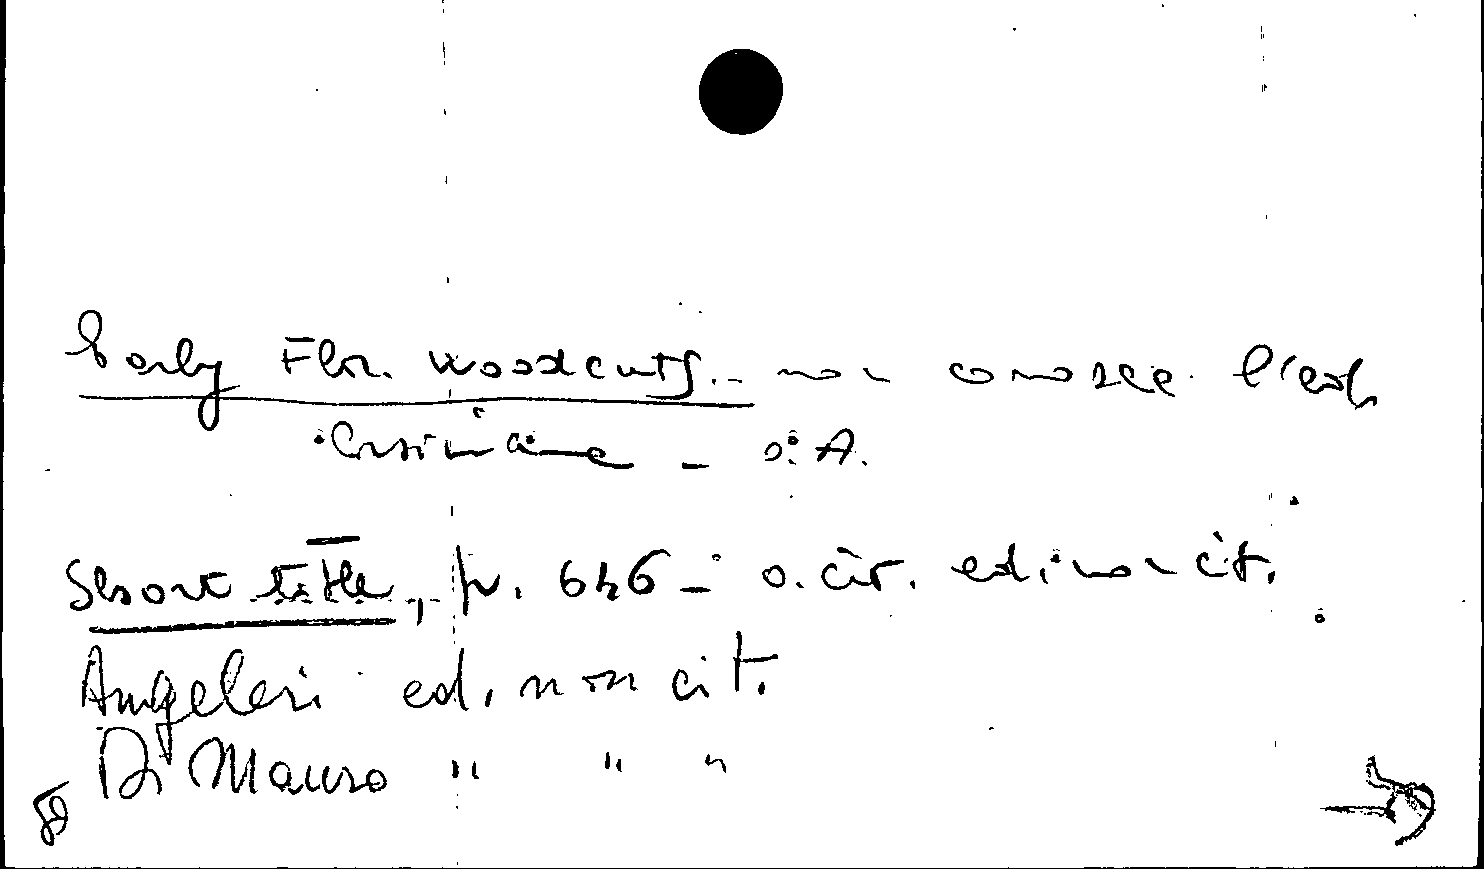 Early Flor. Woodcuts.- non conosce l'ed.
Cusiniane - o: A.
Short title, p. 646 - o. cit. ed. non cit.
Angeleri ed. non cit.
Di Mauro " " "